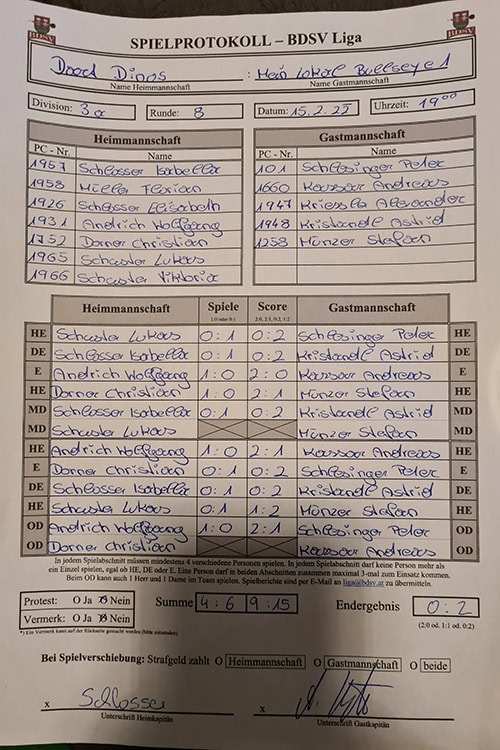 BDSV BDSV
SPIELPROTOKOLL – BDSV Liga
Doord Dinos : Mein Lokal Bullseye 1
Name Heimmannschaft Name Gastmannschaft
Division: 3a Runde: 8 Datum: 15.2.22 Uhrzeit: 19⁰⁰
Heimmannschaft Gastmannschaft
PC - Nr. Name PC - Nr. Name
1957 Schlosser Isabella 101 Schlesinger Peter
1958 Müller Florian 1660 Kaossar Andreas
1926 Schlosser Elisabeth 1947 Kriessla Alexander
1931 Andrich Wolfgang 1948 Kristandl Astrid
1752 Dorner Christian 1258 Münzer Stefan
1965 Schuster Lukas
1966 Schuster Viktoria
Heimmannschaft Spiele Score Gastmannschaft
1:0 oder 0:1 2:0, 2:1, 0:2, 1:2
HE Schuster Lukas 0:1 0:2 Schlesinger Peter HE
DE Schlosser Isabella 0:1 0:2 Kristandl Astrid DE
E Andrich Wolfgang 1:0 2:0 Kaossar Andreas E
HE Dorner Christian 1:0 2:1 Münzer Stefan HE
MD Schlosser Isabella 0:1 0:2 Kristandl Astrid MD
MD Schuster Lukas Münzer Stefan MD
HE Andrich Wolfgang 1:0 2:1 Kaossar Andreas HE
E Dorner Christian 0:1 0:2 Schlesinger Peter E
DE Schlosser Isabella 0:1 0:2 Kristandl Astrid DE
HE Schuster Lukas 0:1 1:2 Münzer Stefan HE
OD Andrich Wolfgang 1:0 2:1 Schlesinger Peter OD
OD Dorner Christian Kaossar Andreas OD
In jedem Spielabschnitt müssen mindestens 4 verschiedene Personen spielen. In jedem Spielabschnitt darf keine Person mehr als
ein Einzel spielen, egal ob HE, DE oder E. Eine Person darf in beiden Abschnitten zusammen maximal 3-mal zum Einsatz kommen.
Beim OD kann auch 1 Herr und 1 Dame im Team spielen. Spielberichte sind per E-Mail an liga@bdsv.at zu übermitteln.
Protest: O Ja O Nein Summe 4:6 9:15 Endergebnis 0:2
Vermerk: O Ja O Nein (2:0 od. 1:1 od. 0:2)
*) Ein Vermerk kann auf der Rückseite gemacht werden (bitte mitsenden)
Bei Spielverschiebung: Strafgeld zahlt O Heimmannschaft O Gastmannschaft O beide
x Schlosser x
Unterschrift Heimkapitän Unterschrift Gastkapitän